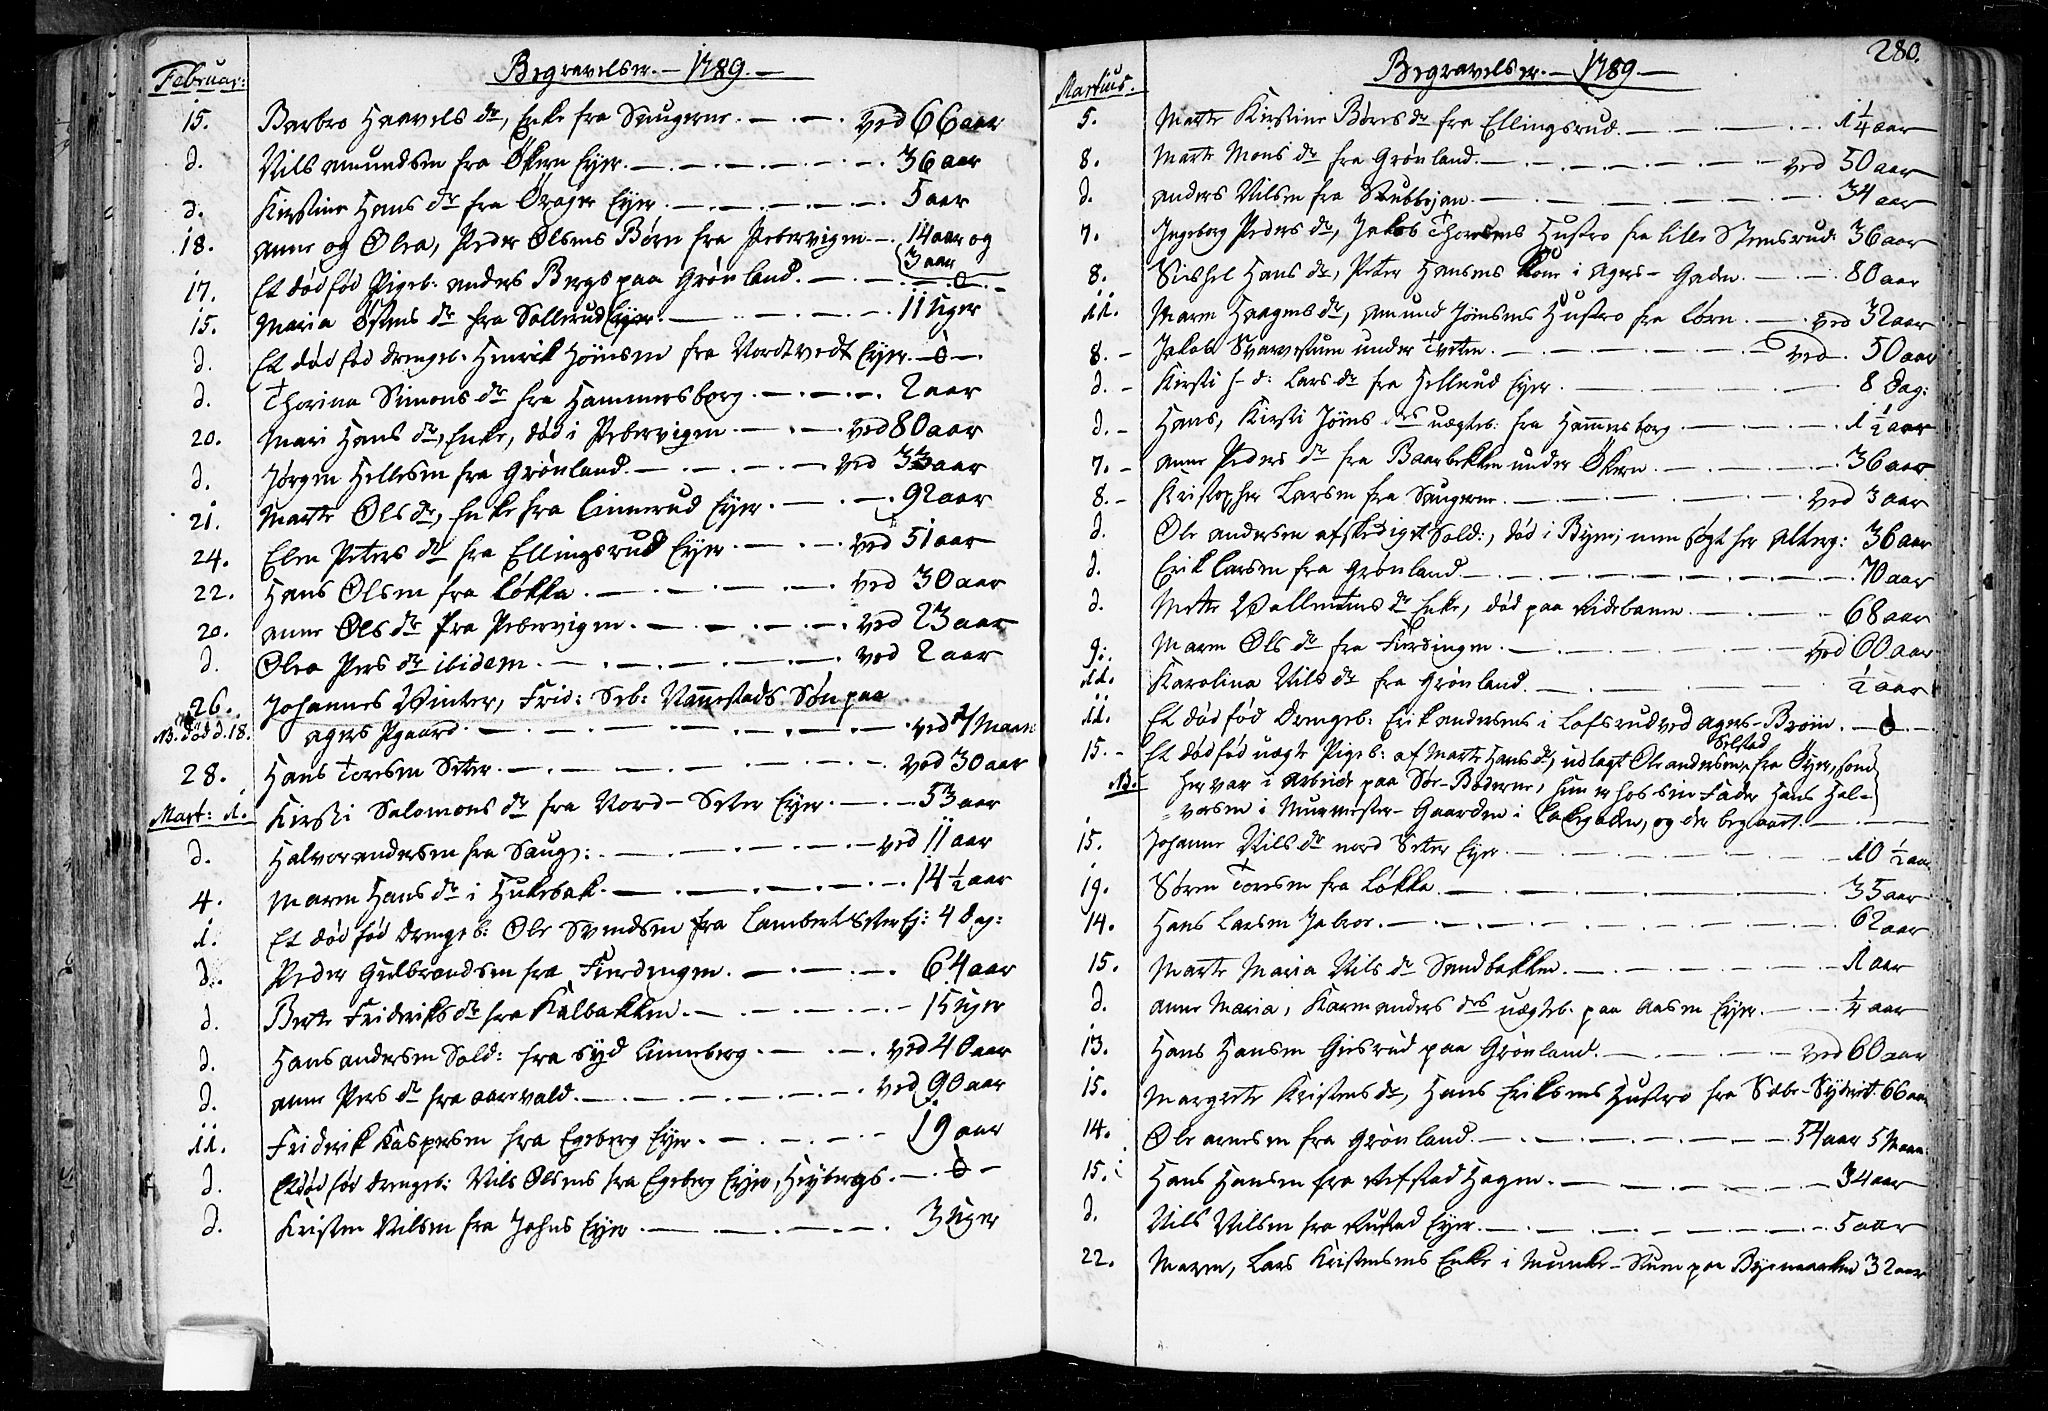 Februar: Begravelser. — 1789. —
15. Barbro Haavels dr, Enke fra Saugerne. — ved 66 aar
d. Nils Amundsen fra Økern Eyer. — 36 aar
d. Kirstine Hans dr fra Ørager Eyer. — 5 aar
18. Anne og Olea, Peder Olsens Børn fra Pebervigen — 14 aar og
3 aar
17. Et død fød Pigeb: Anders Bergs paa Grønland. — 0 —
15. Maria Østens dr fra Sollerud Eyer. — 11 Uger
d. Et død fød Drengeb. Henrik Hønsen fra Nordtvedt Eyer — 0 —
d. Thorina Simons dr fra Hammersborg. — 2 aar
20. Mari Hans dr, Enke, død i Pebervigen — ved 80 aar
d. Jørgen Hellesen fra Grønland. — ved 33 aar
21. Marte Ols dr, Enke fra Linnerud Eyer. — 92 aar
24. Elen Peters dr fra Ellingsrud Eyer — ved 51 aar
22. Hans Olsen fra Løkka. — ved 30 aar
20. Anne Ols dr fra Pebervigen. — ved 23 aar
d. Olea Pers dr ibidem. — ved 2 aar
26. Johannes Winter, Frid: Seb: Nannestads Søn paa
NB. død d. 18. Agers Pgaard. — ved Maan
28. Hans Toresen Seter. — ved 30 aar
Mart: 1. Kirsti Salomons dr fra Nord-Seter Eyer. — 53 aar
d. Halvor Andersen fra Saug: — ved 11 aar
4. Maren Hans dr i Hukebak. — 14 ½ aar
1. Et død fød Drengeb: Ole Svendsen fra Lambertseter Ej: 4 Dag:
d. Peder Gulbrandsen fra Fierdingen. — 64 aar
d. Berte Frideriks dr fra Kalbakken. — 15 Uger
d. Hans Andersen Sold: fra Syd Linneberg. — ved 40 aar
d. Anne Pers dr fra Aarvold. — ved 90 aar
11. Friderik Kaspersen fra Egeberg Eyer. — 19 aar
d. Et død fød Drengeb: Nils Olsens fra Egeberg Eyer, Heybergs. — 0 —
d. Kristen Nilsen fra Johns Eyer — 3 Uger
280.
Martius. Begravelser. — 1789 —
5. Marte Kirstine Børes dr fra Ellingsrud. — 1 ¼ aar
8. Marte Mons dr fra Grønland. — ved 50 aar
d. Anders Nilsen fra Stubbejan. — 34 aar
7. Ingeborg Peders dr, Jakob Thoresens Hustro fra lille Stensrud: 36 aar
8. Sirhel Hans dr, Peter Hansens Kone i Agers-Gaden. — 80 aar
11. Maren Haagens dr, Amund Jonsens Hustro fra Lørn. — ved 32 aar
8. — Jakob Svarvestuen under Tveten. — ved 50 aar
d. — Kirsti H-d: Lars dr fra Hellerud Eyer. — 8 Dag:
d. — Hans, Kirsti Jøns drs uægteb: fra Hammersborg — 1 ½ aar
7. — Anne Peders dr fra Baarbekken under Økern. — 36 aar
8. — Kristopher Larsen fra Saugerne. — ved 3 aar
d. Ole Andersen afskediget Sold:, død i Byen; men søgt her Alterg: 36 aar
d. Erik Larsen fra Grønland. — 70 aar
d. Mette Wallentins dr Enke, død paa Ridebanen. — 68 aar
9. Maren Ols dr fra Fierdingen. — ved 60 aar
11. Karolina Nils dr fra Grønland. — ½ aar
11. Et død fød Drengeb: Erik Andersens i Lofsrud ved Agers-Broen. — 0 —
15. — Et død fød uægte Pigeb: af Marte Hans dr, udlagt Ole Andersen Selstad fra Øyer, som
NB. her var i Arbeide paa Søe-Boderne, hun er hos sin Fader Hans Hal-
vorsen i Muurmester-Gaarden i Lakegaden, og der begravet. —
15. Johanne Nils dr nord Seter Eyer. — 10 ½ aar
19. Søren Toresen fra Løkka. — 35 aar
14. Hans Larsen Jaboe. — 62 aar
15. Marte Maria Nils dr Sandbakken. — 1 aar
d. Anne Maria, Karen Anders drs uægteb. paa Aasen Eyer. — ¼ aar
13. Hans Hansen Giesrud paa Grønland. — ved 60 aar
15. Margrete Kristens dr, Hans Eriksens Hustro fra — 66 aar
14. Ole Arnesen fra Grønland. — 54 aar 5 Maan:
15. Hans Hansen fra Refstad Hagen. — 34 aar
d. Nils Nilsen fra Rustad Eyer. — 5 aar
22. Maren, Lars Kristensens Enke i Munke-Stuen paa Byemarken 32 aar